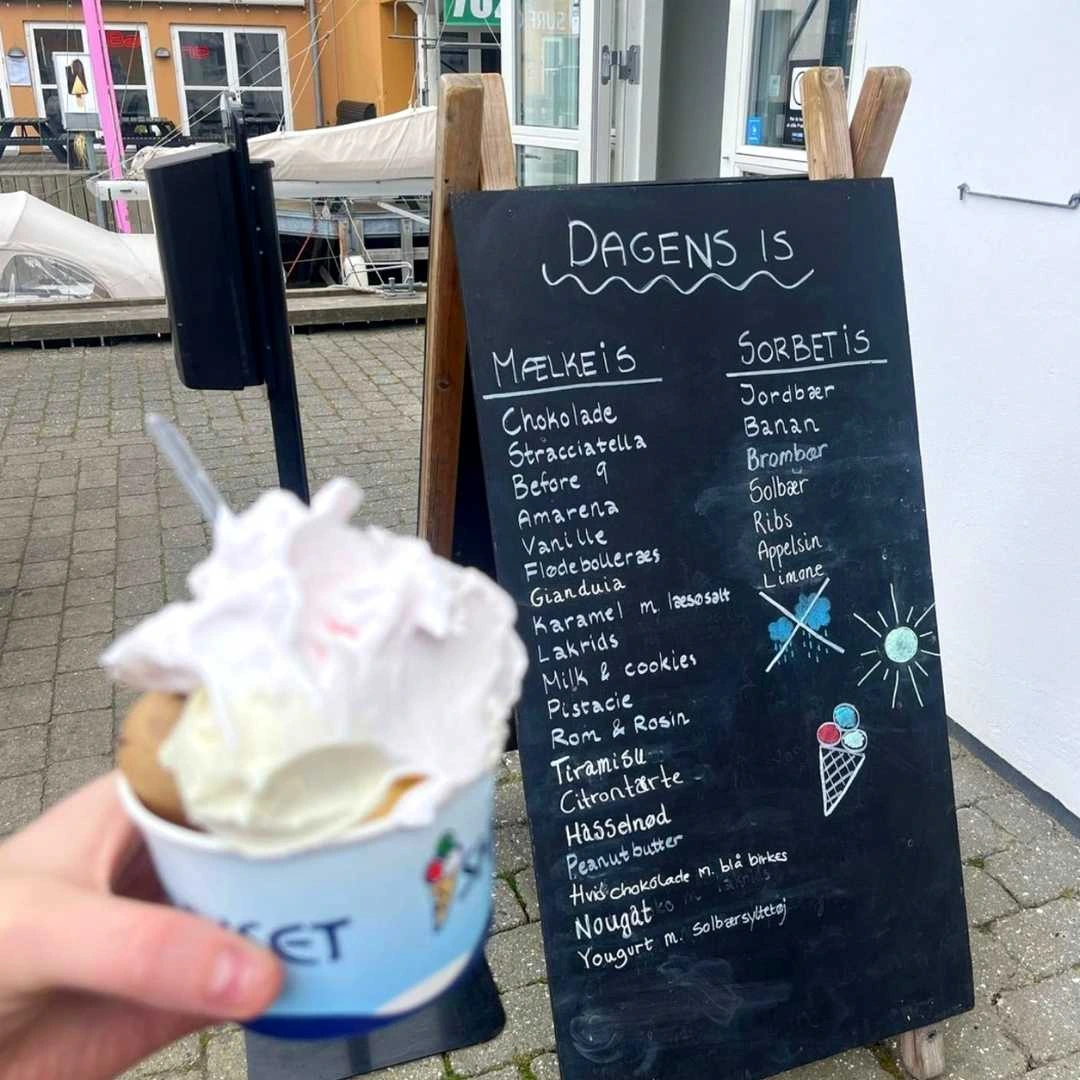 DAGENS IS
MÆLKEIS
Chokolade
Stracciatella
Before 9
Amarena
Vanille
Flødebolleræs
Gianduia
Karamel m. læsøsalt
Lakrids
Milk & cookies
Pistacie
Rom & Rosin
Tiramisu
Citrontærte
Hasselnød
Peanutbutter
Hvis chokolade m. blå birkes
Nougat
Yougurt m. Solbærsyltetøj
SORBETIS
Jordbær
Banan
Brombær
Solbær
Ribs
Appelsin
Limone